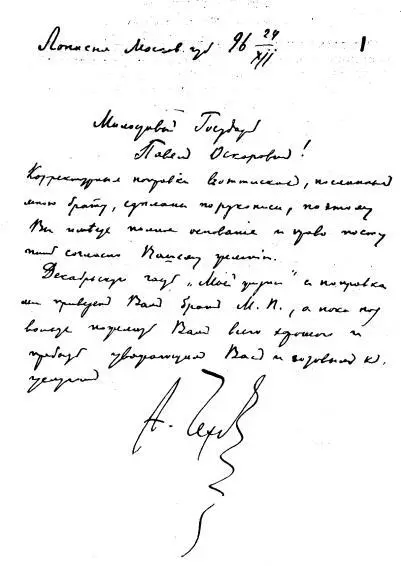 Лопасня Москов. губ 96 24/XII 1
Милостивый Государь
Павел Оскарович!
Корректурные поправки в оттисках, посланных
мною брату, сделаны по рукописи, поэтому
Вы имеете полное основание и право посту
пить согласно Вашему
Декабрьскую часть „Моей жизни" с поправка
ми привезет Вам брат М. П., а пока поз
вольте пожелать Вам всего хорошего и
пребыть уважающим Вас и готовым к
услугам
А. Чехов